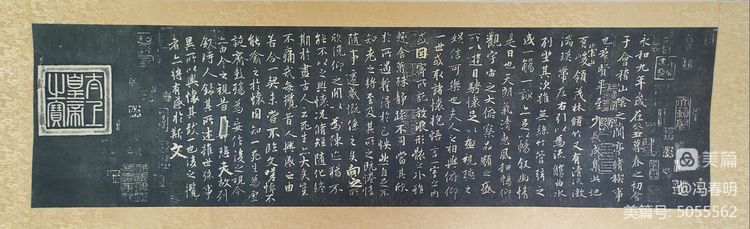 永和九年歲在癸丑暮春之初會
于會稽山陰之蘭亭脩稧事
也群賢畢至少長咸集此地
有崇山峻領茂林脩竹又有清流激
湍暎帶左右引以為流觴曲水
列坐其次雖無絲竹管弦之
盛一觴一詠亦足以暢敘幽情
是日也天朗氣清惠風和暢仰
觀宇宙之大俯察品類之盛
所以遊目騁懷足以極視聽之
娛信可樂也夫人之相與俯仰
一世或取諸懷抱悟言一室之內
或因寄所託放浪形骸之外雖
趣舍萬殊靜躁不同當其欣
於所遇蹔得於己怏然自足不
知老之將至及其所之既惓情
隨事遷感慨係之矣向之所
欣俛仰之閒以為陳迹猶不
能不以之興懷況脩短隨化終
期於盡古人云死生亦大矣豈
不痛哉每攬昔人興感之由
若合一契未嘗不臨文嗟悼不
能喻之於懷固知一死生為虛
誕齊彭殤為妄作後之視今
亦由今之視昔悲夫故列
敘時人錄其所述雖世殊事
異所以興懷其致一也後之攬
者亦將有感於斯文
太上皇帝之寶
美篇
@冯春明
美篇号: 5055562